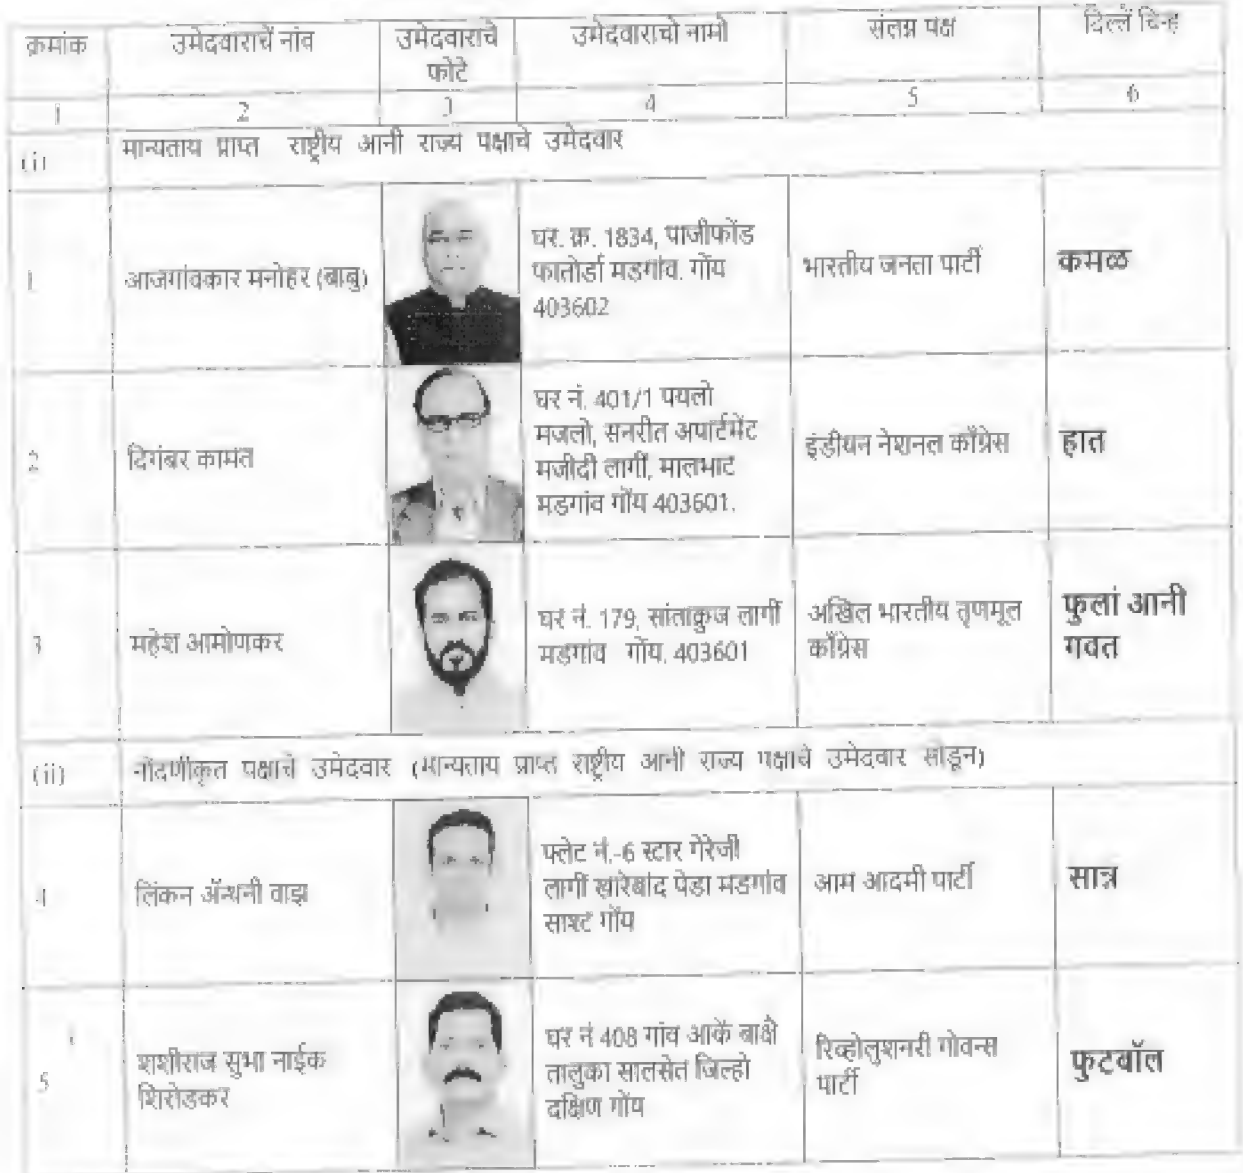 क्रमांक उमेदवाराचें नांव उमेदवाराचे फोटे उमेदवाराचो नामो संलग्न पक्ष दिल्लें चिन्ह
1 2 3 4 5 6
(i) मान्यताय प्राप्त राष्ट्रीय आनी राज्य पक्षाचे उमेदवार
1 आजगांवकार मनोहर (बाबु)
घर. क्र. 1834, पाजीफोंड
फातोर्डा मडगांव. गोंय
403602
भारतीय जनता पार्टी
कमळ
2 दिगंबर कामत
घर नं. 401/1 पयलो
मजलो, सनरीत अपार्टमेंट
मजीदी लागीं, मालभाट
मडगांव गोंय 403601.
इंडीयन नेशनल काँग्रेस
हात
3 महेश आमोणकर
घर नं. 179, सांताक्रुज लागीं
मडगांव गोंय. 403601
अखिल भारतीय तृणमूल
काँग्रेस
फुलां आनी
गवत
(ii) नोंदणीकृत पक्षाचे उमेदवार (मान्यताय प्राप्त राष्ट्रीय आनी राज्य पक्षाचे उमेदवार सोडून)
4 लिंकन ॲन्थनी वाझ
फ्लेट नं.-6 स्टार गॅरेजी
लागीं खारेबांद पेडा मडगांव
साश्ट गोंय
आम आदमी पार्टी
सान्न
5 शशीराज सुभा नाईक
शिरोडकर
घर नं 408 गांव आकें बाक्षे
तालुका सालसेत जिल्हो
दक्षिण गोंय
रिव्होलुशनरी गोवन्स
पार्टी
फुटबॉल